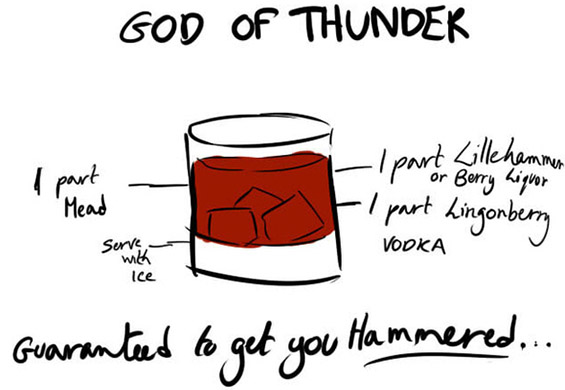 GOD OF THUNDER
1 part
Mead
Serve
with
Ice
1 part Lillehammer
or Berry Liquor
1 part Lingonberry
VODKA
Guaranteed to get you Hammered...